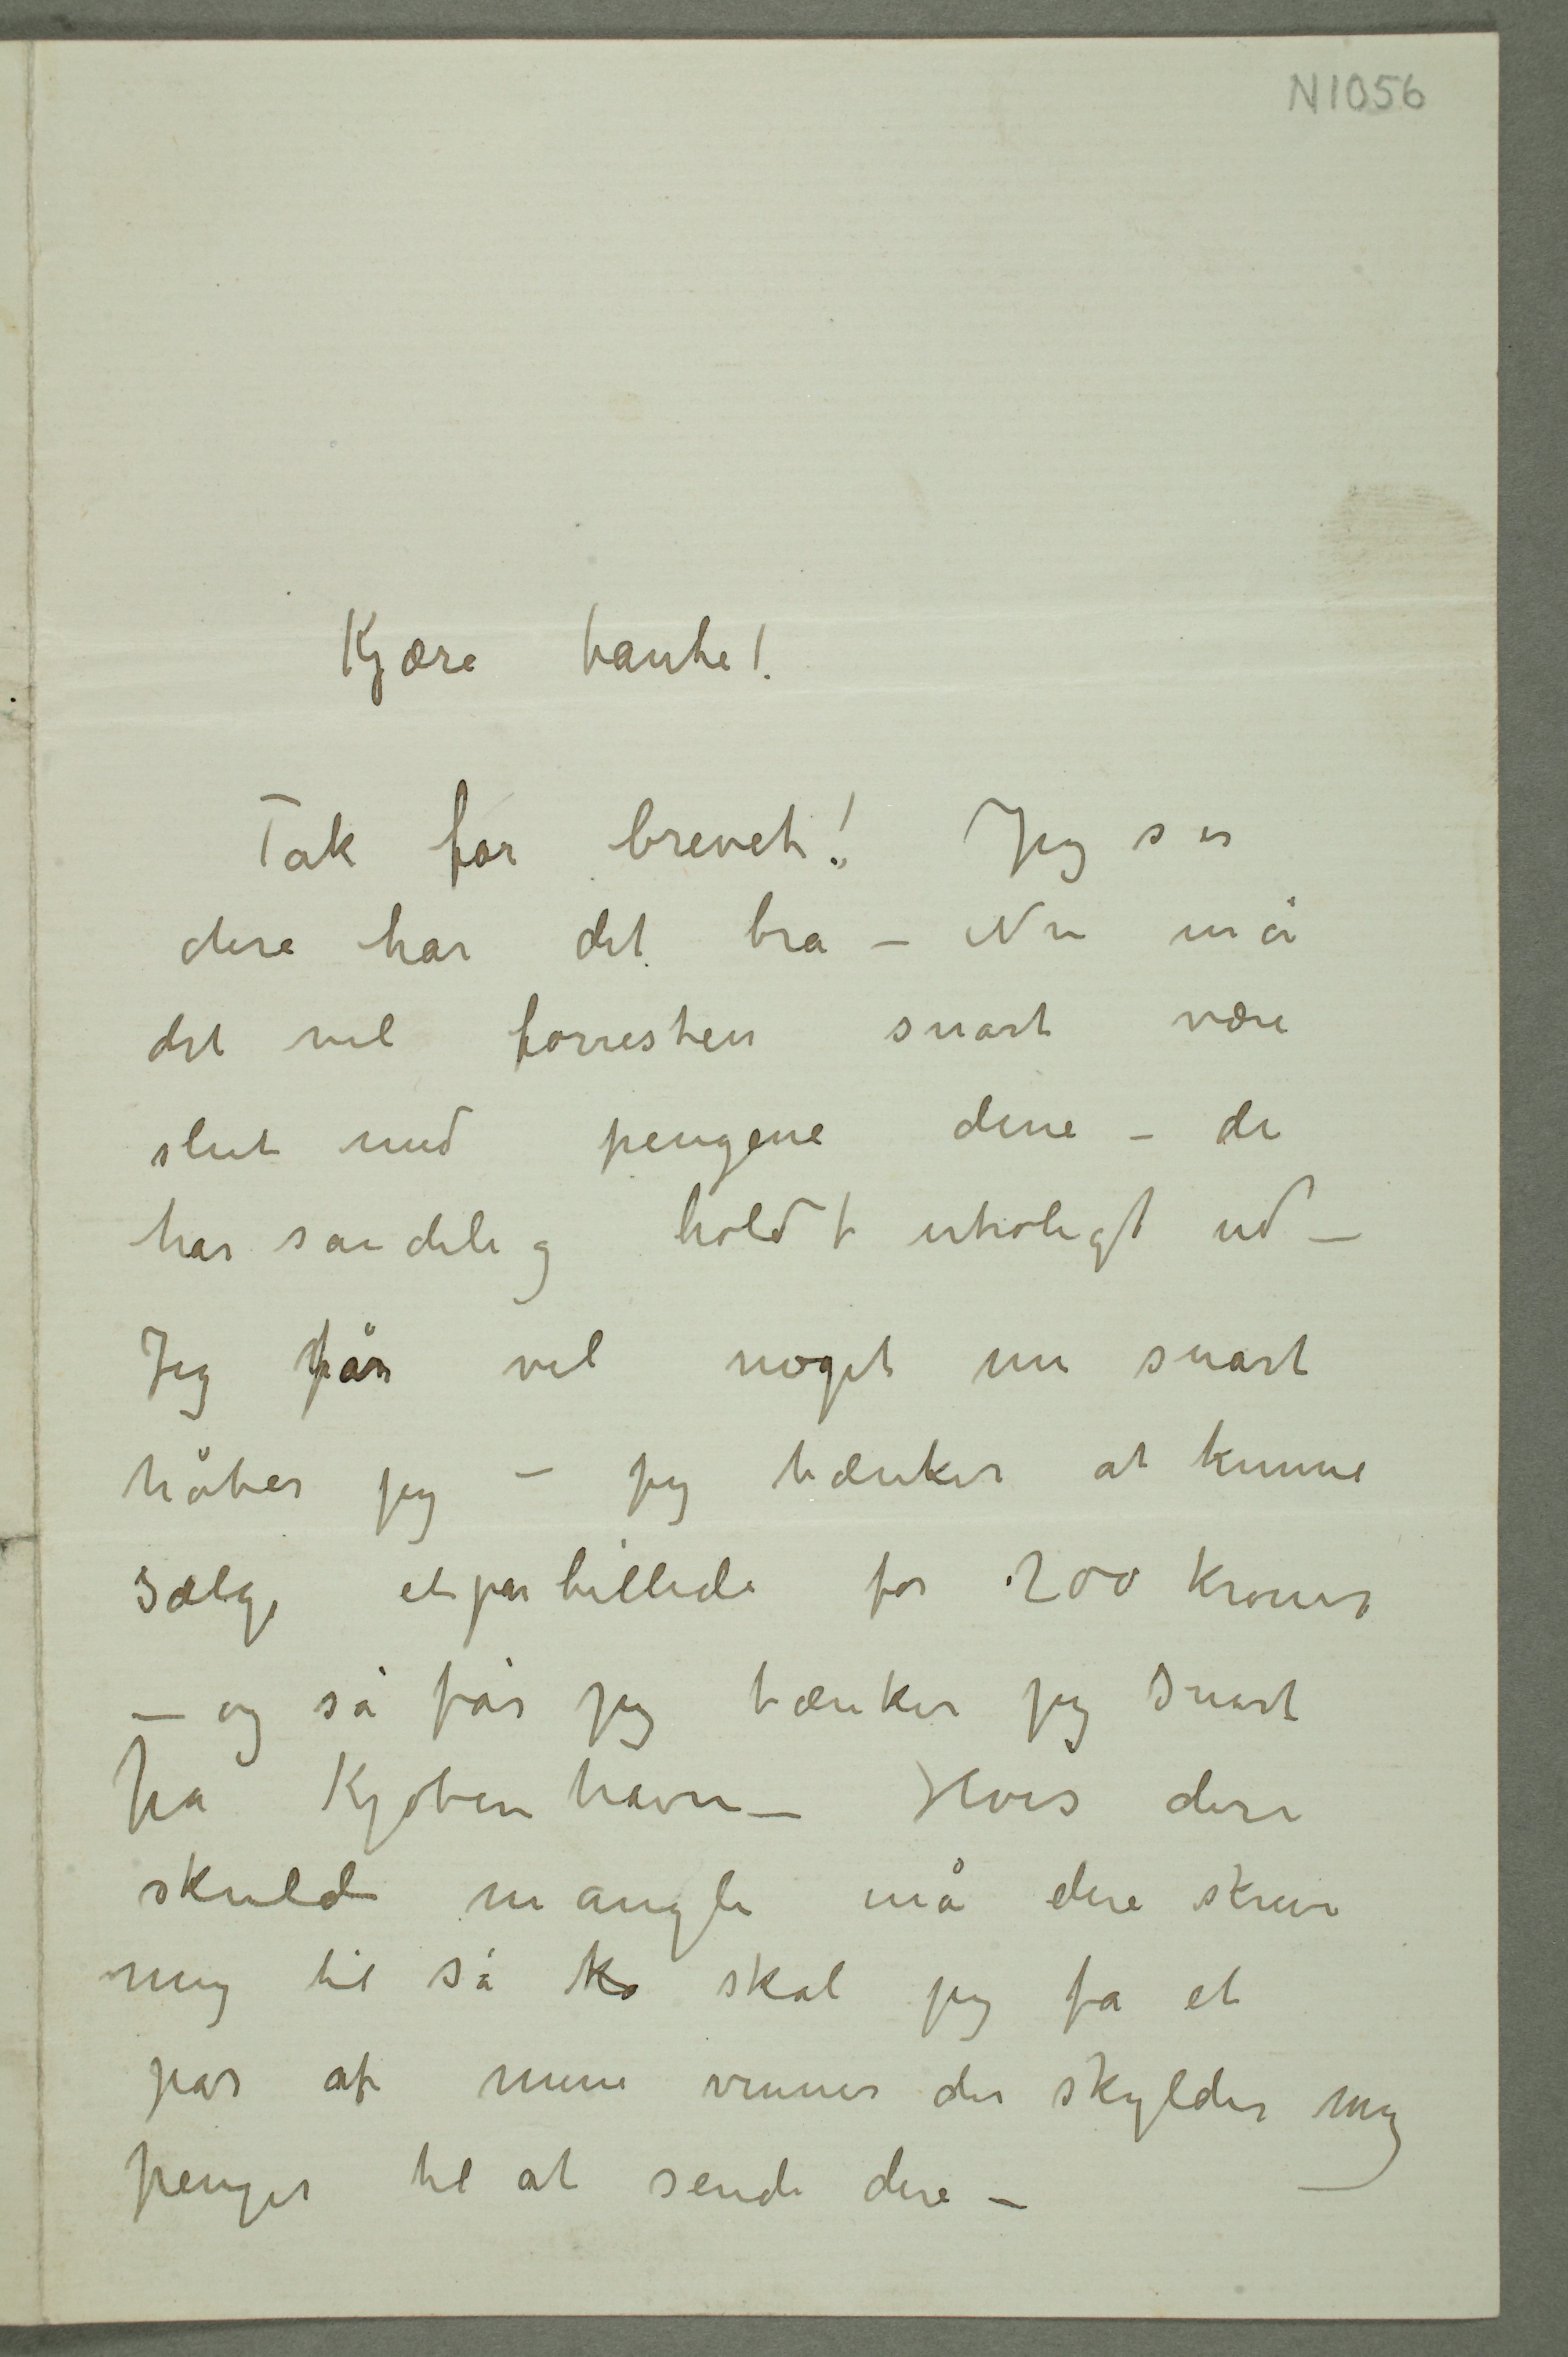 N 1056
Kjære tante!
Tak for brevet! Jeg ser
dere har det bra – Nu må
det vel forresten snart være
slut med pengene dine – de
har sandelig holdt utroligt ud –
Jeg får vel noget nu snart
håber jeg – jeg tænker at kunne
sælge et par billede for 200 kroner
– og så får jeg tænker jeg snart
fra Kjøbenhavn – Hvis dere
skulde mangle må dere skrive
mig til så skal jeg få et
par af mine venner der skylder mig
penger til at sende dere –